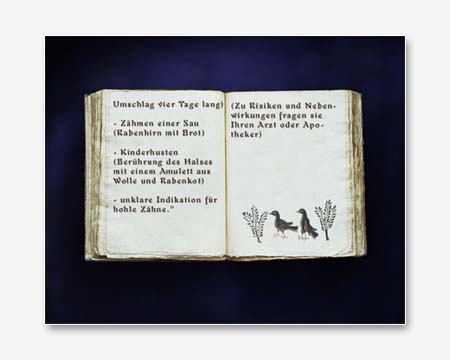 Umschlag vier Tage lang)
- Zähmen einer Sau
(Rabenhirn mit Brot)
- Kinderhusten
(Berührung des Halses
mit einem Amulett aus
Wolle und Rabenkot)
- unklare Indikation für
hohle Zähne."
(Zu Risiken und Neben-
wirkungen fragen sie
Ihren Arzt oder Apo-
theker)